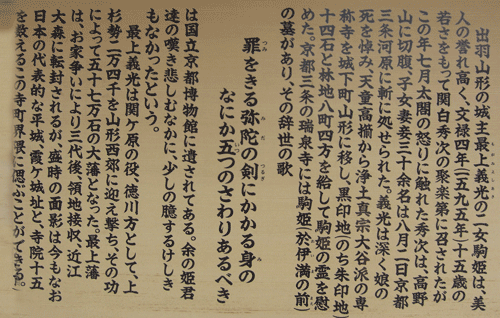 出羽山形の城主最上義光の二女駒姫は、美
人の誉れ高く、文禄四年(一五九五年)十五歳の
若さをもって関白秀次の聚楽第に召されたが
この年七月太閤の怒りに触れた秀次は、高野
山に切腹、子女妻妾三十余名は八月二日京都
三条河原に斬に処せられた。義光は深く娘の
死を悼み、天童高擶から浄土真宗大谷派の専
称寺を城下町山形に移し、黒印地(のち朱印地)
十四石と林地八町四方を給して駒姫の霊を慰
めた。京都三条の瑞泉寺には駒姫(於伊満の前)
の墓があり、その辞世の歌
罪をきる弥陀の剣にかかる身の
つみ みだ つるぎ み
なにか五つのさわりあるべき
は国立京都博物館に遺されてある。余の姫君
達の嘆き悲しむなかに、少しの臆するけしき
もなかったという。
最上義光は関ケ原の役、徳川方として、上
杉勢二万四千を山形西郊に迎え撃ち、その功
によって五十七万石の大藩となった。最上藩
は、お家争いにより三代後、領地接収、近江
大森に転封されるが、盛時の面影は今もなお
日本の代表的な平城、霞ケ城址と、寺院十五
を数えるこの寺町界隈に偲ぶことができる。